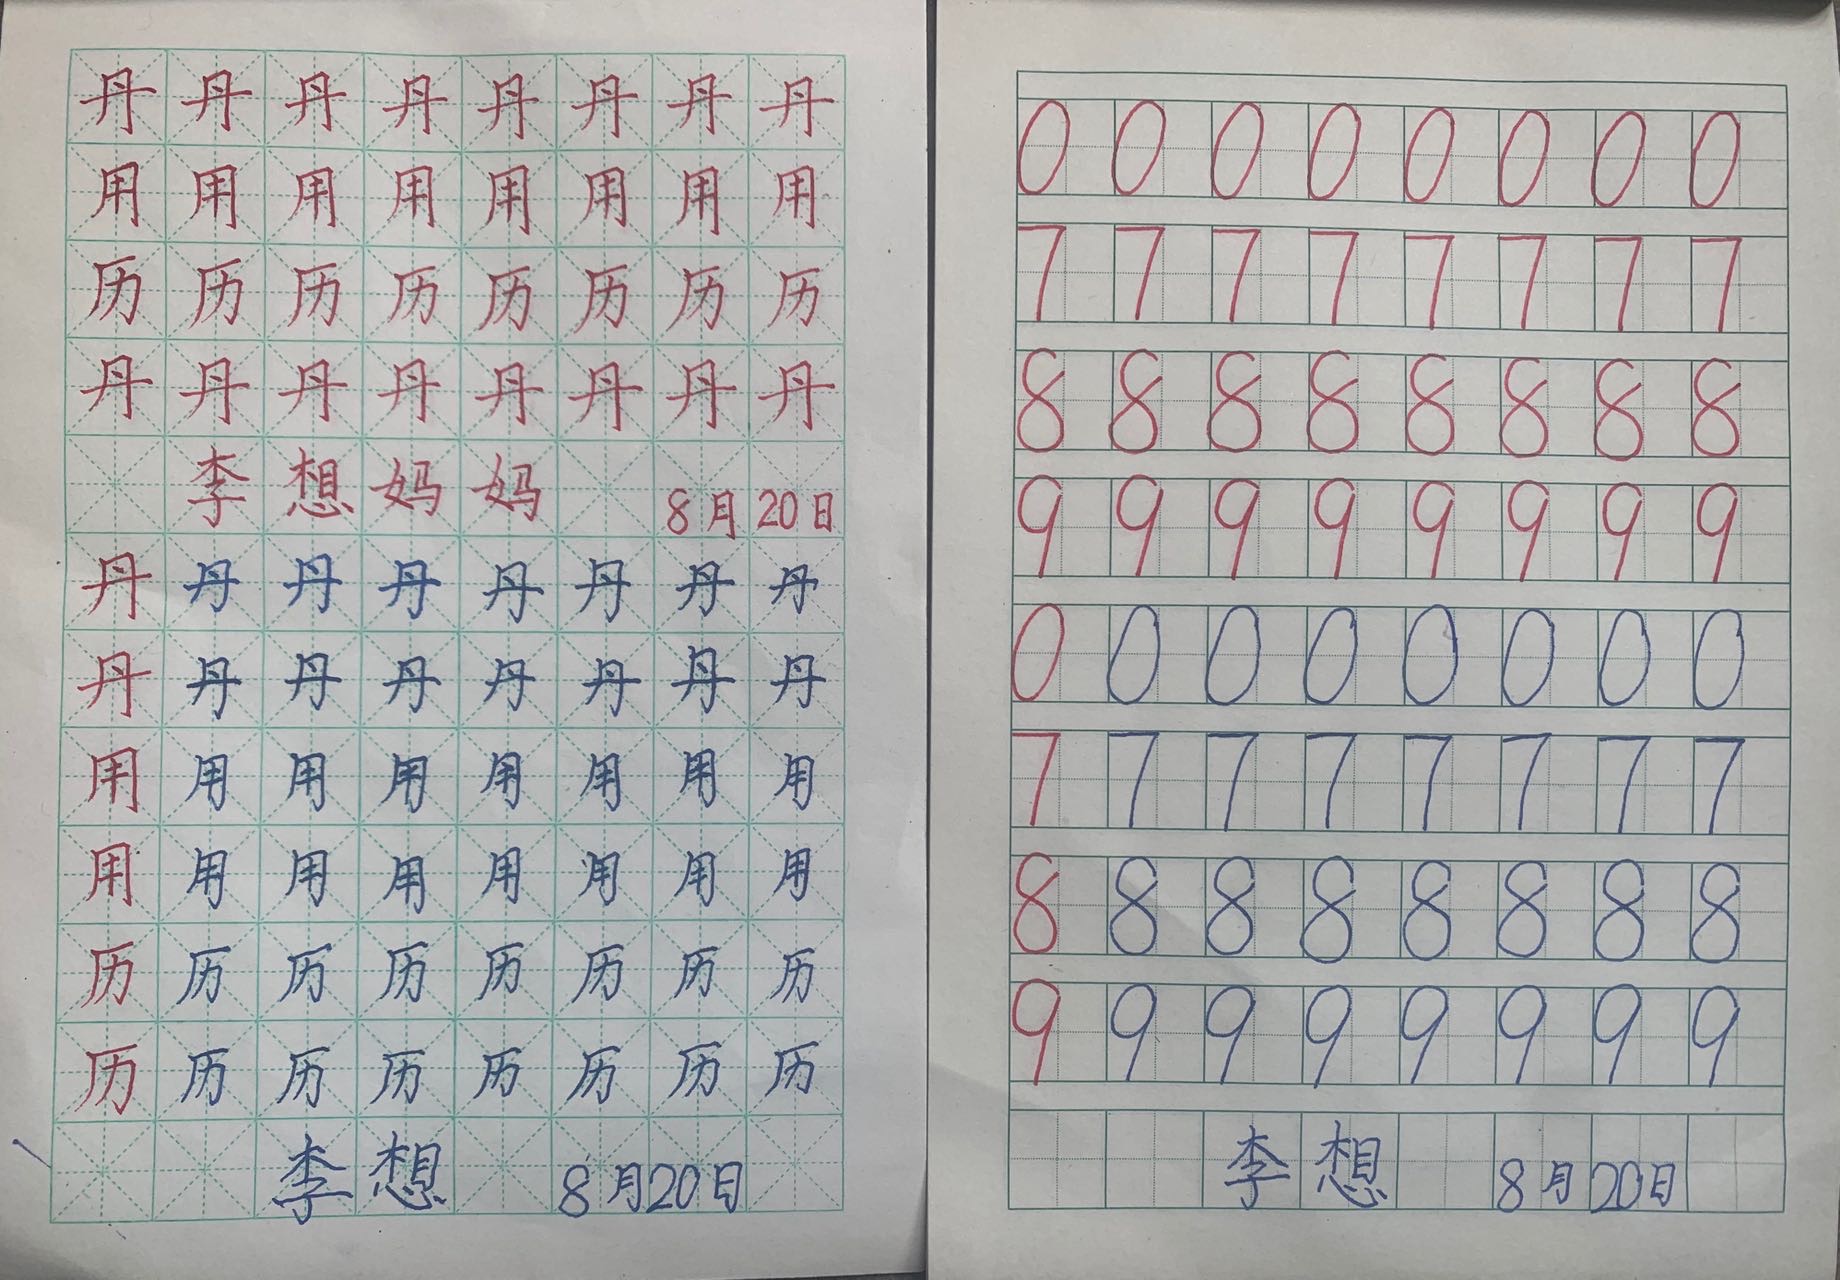 丹丹丹丹丹丹丹丹
用用用用用用用用
历历历历历历历历
丹丹丹丹丹丹丹丹
李想妈妈 8月20日
丹丹丹丹丹丹丹丹
丹丹丹丹丹丹丹丹
用用用用用用用用
用用用用用用用用
历历历历历历历历
历历历历历历历历
李想 8月20日
0 0 0 0 0 0 0 0
7 7 7 7 7 7 7 7
8 8 8 8 8 8 8 8
9 9 9 9 9 9 9 9
0 0 0 0 0 0 0 0
7 7 7 7 7 7 7 7
8 8 8 8 8 8 8 8
9 9 9 9 9 9 9 9
李想 8月20日